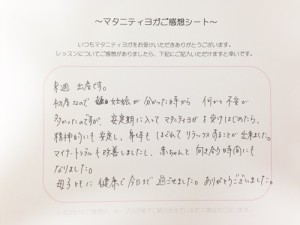 ～マタニティヨガご感想シート～
いつもマタニティヨガをお受けいただきありがとうございます。
レッスンについてご感想がありましたら、下記にご記入いただけますと幸いです。
来週 出産です。
初産なので 妊娠が分かった日から 何かと不安が
多かったのですが、安定期に入って マタニティヨガを受けはじめたら、
精神的にも安定し、身体も ほぐれて リラックスすることが出来ました。
マイナートラブルも改善しましたし、赤ちゃんと 向き合う時間にも
なりました。
母子ともに 健康で 今日まで 過ごせました。ありがとうございました。